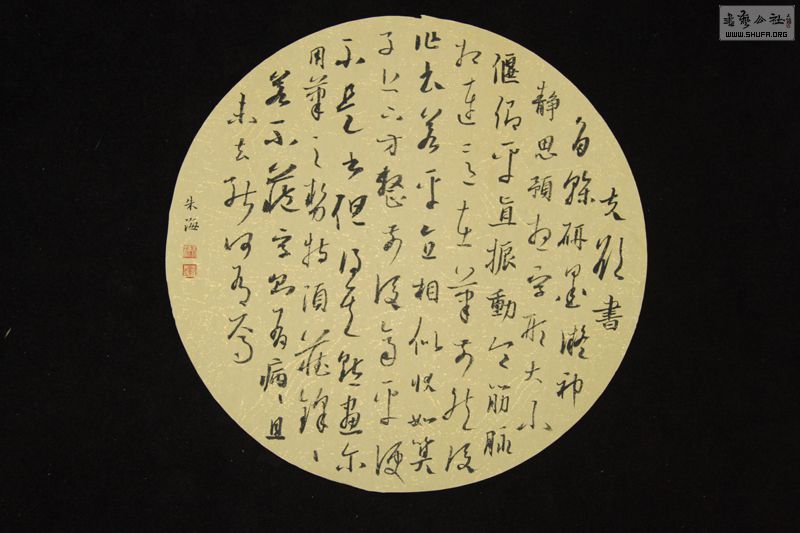 書藝公社
WWW.SHUFA.ORG
夫欲書
者乾研墨凝神
静思預想字形大小
偃仰平直振動令筋脉
相連意在筆前然後
作書若平直相似状如算
子上下方整前後齊平便
不是書但得其點畫尔
用筆之勢特須藏鋒〻
若不藏字則有病〻且
未去能何有焉
朱海